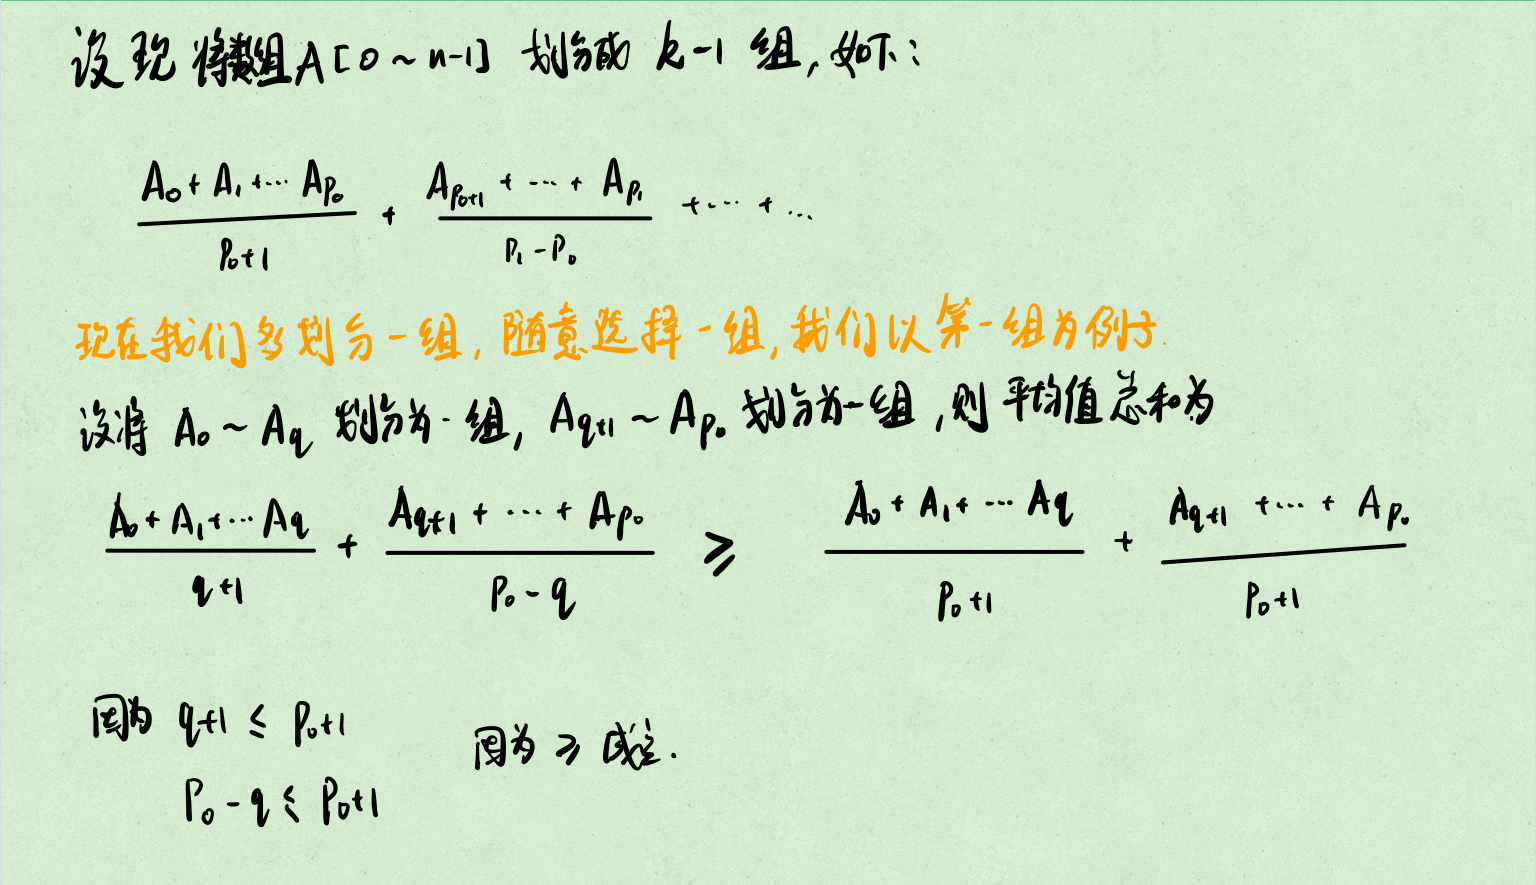 设现将数组A[0~n-1] 划分成 k-1 组, 如下:
A₀+A₁+···A_{p₀} / p₀+1 + A_{p₀+1}+···+A_{p₁} / p₁-p₀ +···+···
现在我们多划分一组, 随意选择一组, 我们以第一组为例子.
设将 A₀~A_q 划分为一组, A_{q+1}~A_{p₀} 划分为一组, 则平均值总和为
A₀+A₁+···A_q / q+1 + A_{q+1}+···+A_{p₀} / p₀-q ≥ A₀+A₁+···A_q / p₀+1 + A_{q+1}+···+A_{p₀} / p₀+1
因为 q+1 ≤ p₀+1
因为 ≥ 成立.
p₀-q ≤ p₀+1